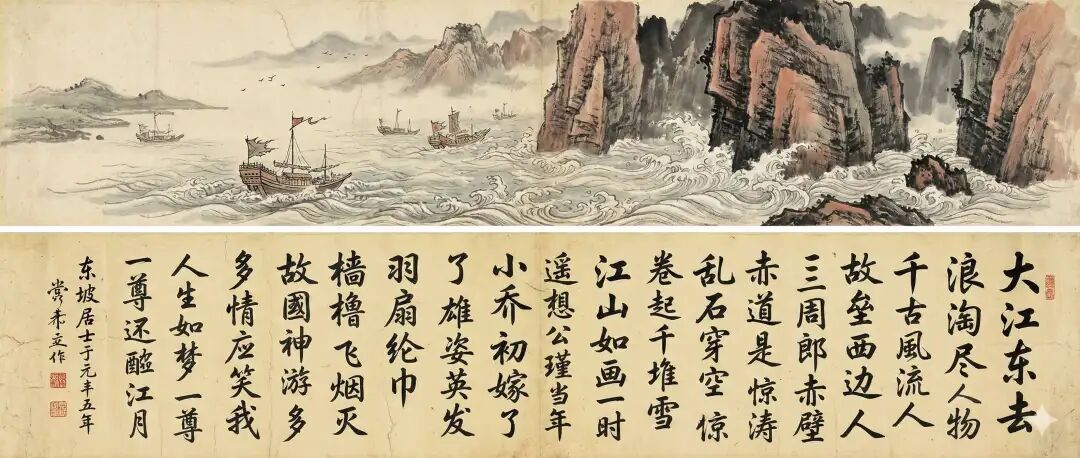 大江东去
浪淘尽人物
千古風流人
故垒西边人
三三周郎赤壁
赤道是惊涛
乱石穿空惊
卷起千堆雪
江山如画一时
遥想公瑾当年
小乔初嫁了
了雄姿英发
羽扇纶巾
樯橹飞烟灭
故國神游多
多情应笑我
人生如梦一尊
一尊还酹江月
东坡居士于元丰五年
立作